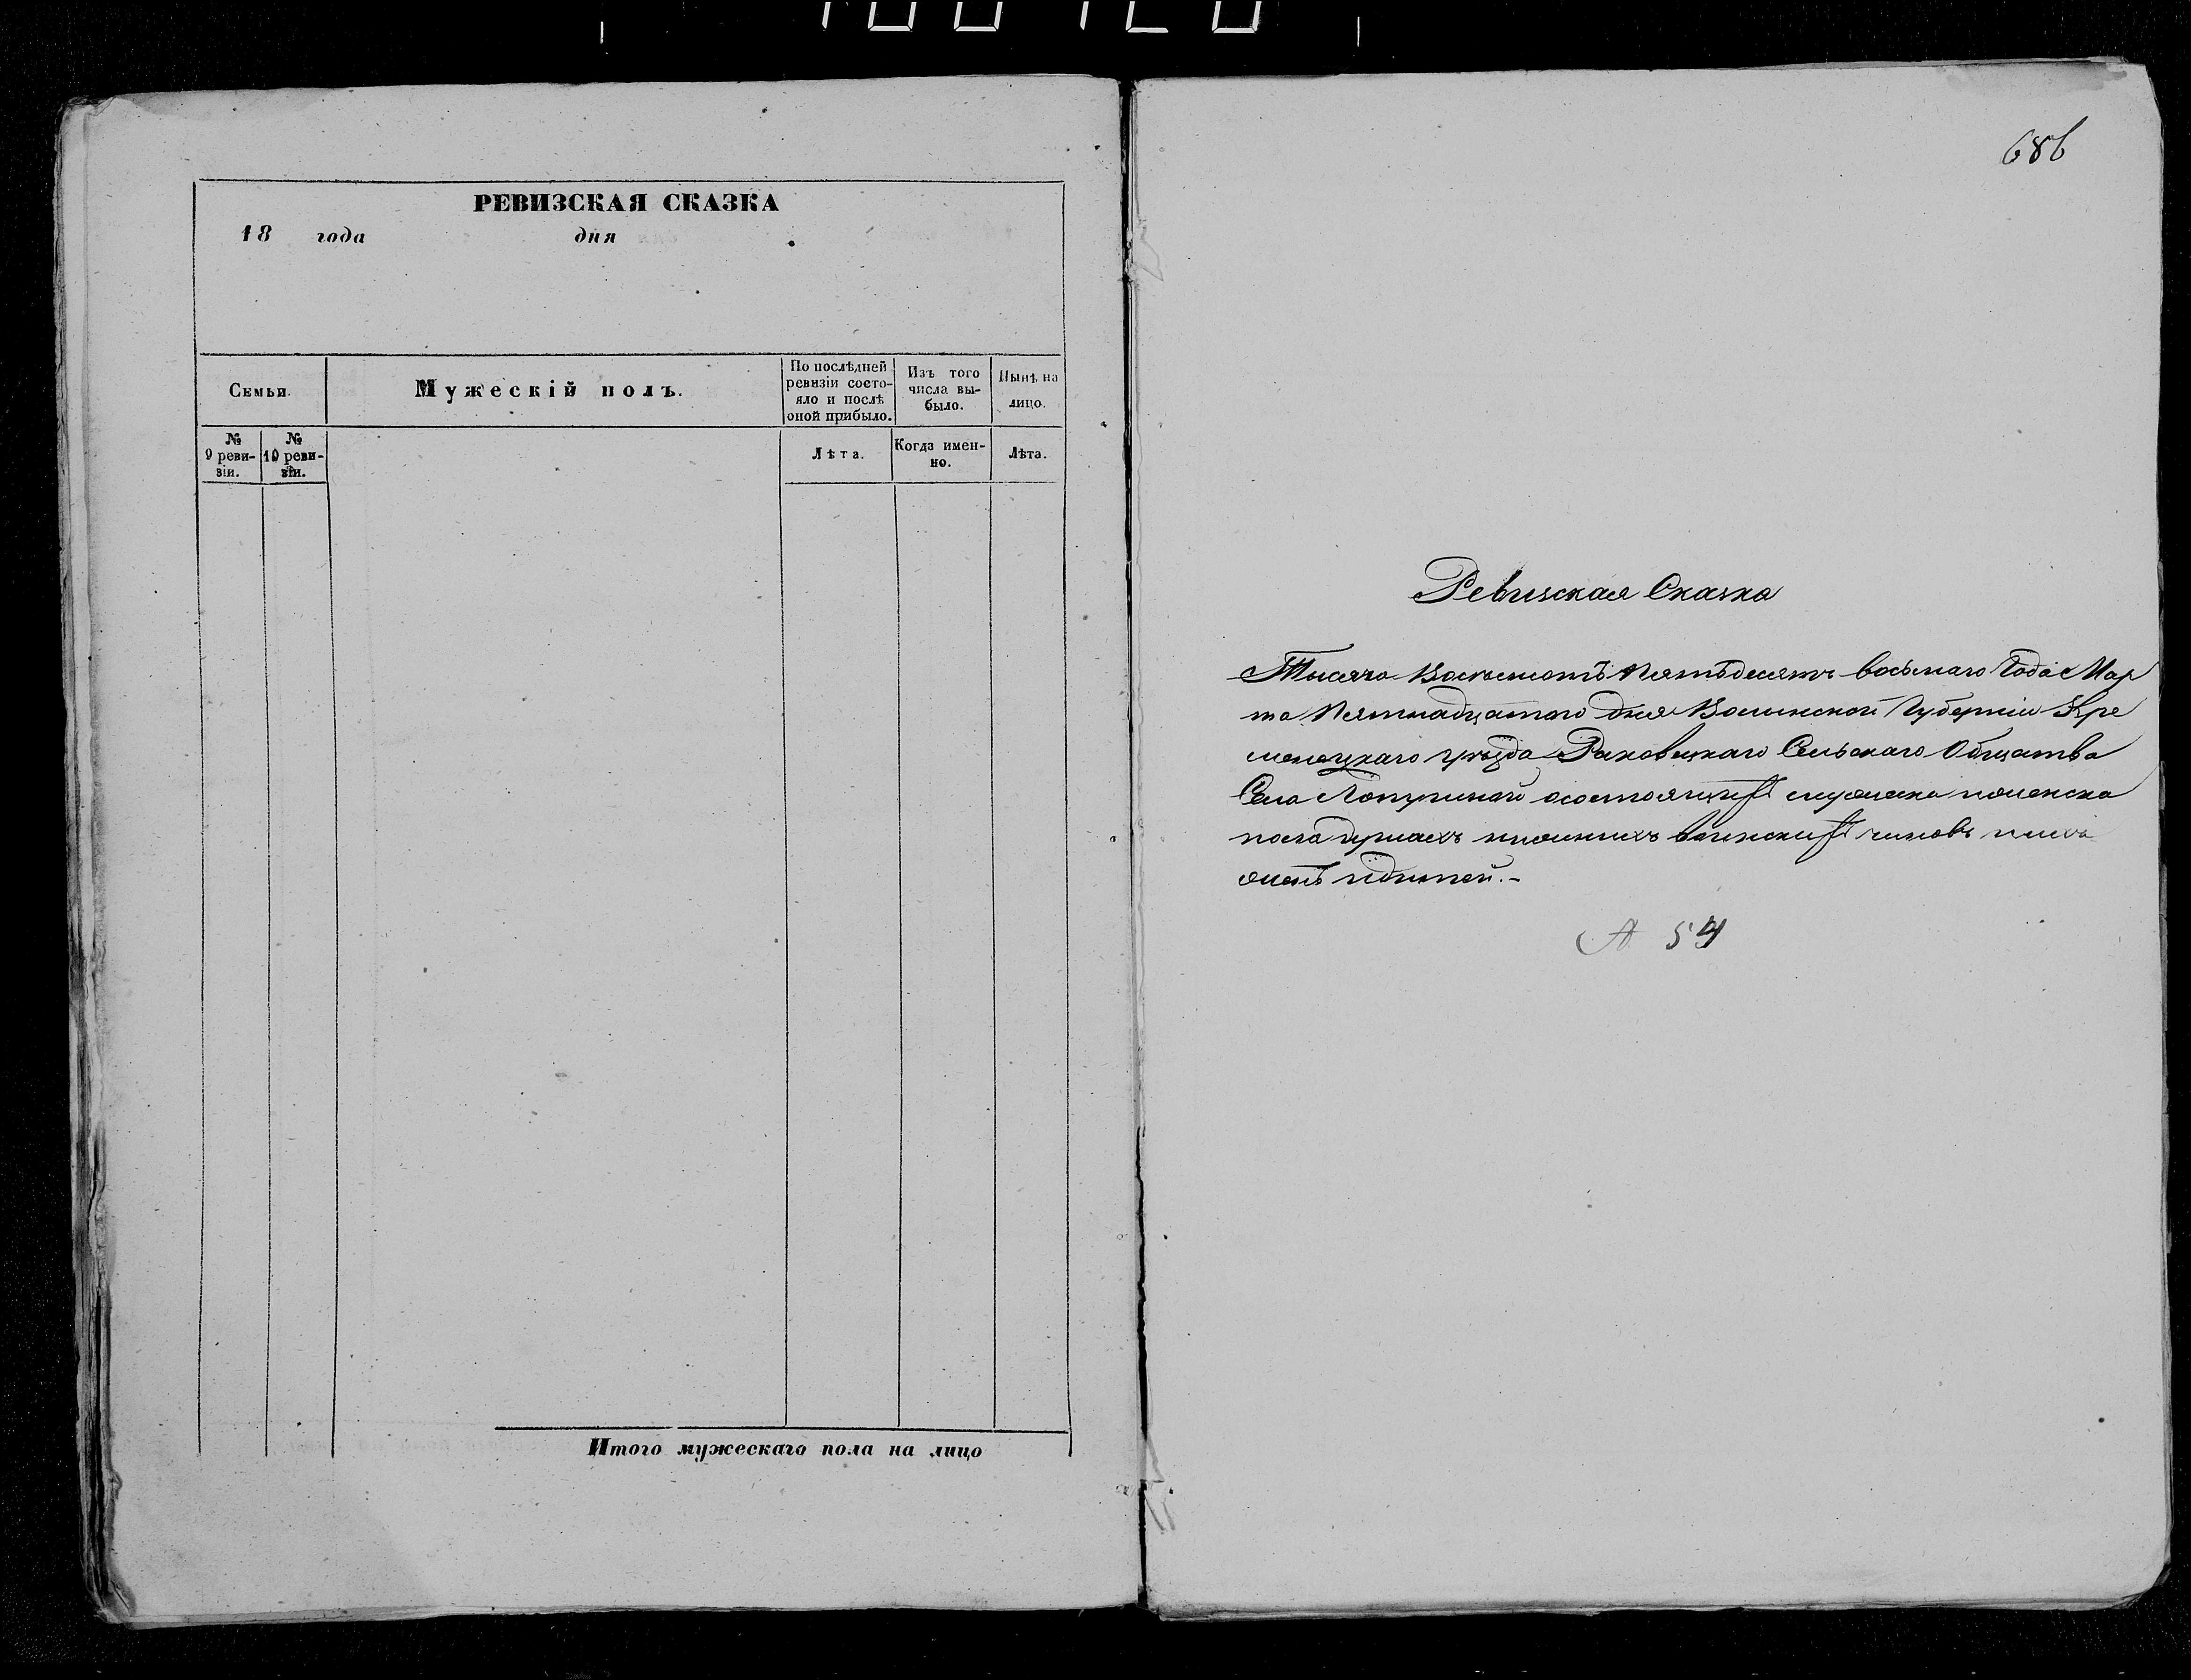 РЕВИЗСКАЯ СКАЗКА
18 года дня
Семьи.
Мужескій полъ.
По послѣдней ревизіи состояло и послѣ оной прибыло.
Изъ того числа выбыло.
Нынѣ на лицо.
№ 9 ревизіи.
№ 10 ревизіи.
Лѣта.
Когда именно.
Лѣта.
Итого мужескаго пола на лицо
686
Ревизская Сказка
Тысяча Восемсотъ Пятьдесятъ восьмаго Года Мар
та Пятнадцатого Дня Волинской Губерніи Кре
менецкаго уѣзда Раковецкаго Сельскаго Общества
Села Лопушной о состоящихъ
нижнихъ воинскихъ чиновъ
женъ идѣтей.-
54